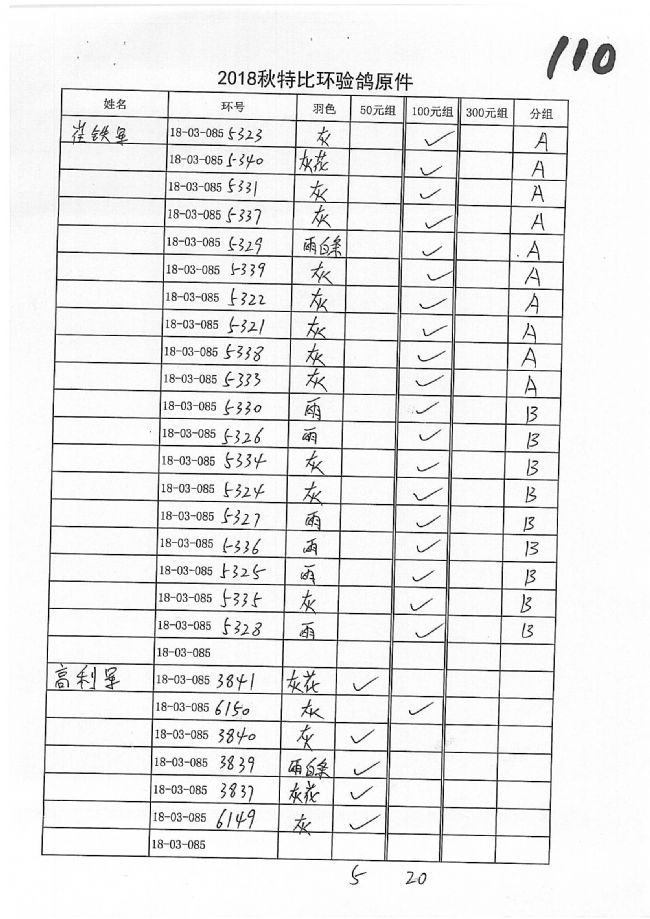 110
2018秋特比环验鸽原件
姓名 环号 羽色 50元组 100元组 300元组 分组
崔铁军 18-03-085 5323 灰 ✓ A
18-03-085 5340 灰花 ✓ A
18-03-085 5331 灰 ✓ A
18-03-085 5337 灰 ✓ A
18-03-085 5329 雨白条 ✓ A
18-03-085 5339 灰 ✓ A
18-03-085 5322 灰 ✓ A
18-03-085 5321 灰 ✓ A
18-03-085 5338 灰 ✓ A
18-03-085 5333 灰 ✓ A
18-03-085 5330 雨 ✓ B
18-03-085 5326 雨 ✓ B
18-03-085 5334 灰 ✓ B
18-03-085 5324 灰 ✓ B
18-03-085 5327 雨 ✓ B
18-03-085 5336 雨 ✓ B
18-03-085 5325 雨 ✓ B
18-03-085 5335 灰 ✓ B
18-03-085 5328 雨 ✓ B
18-03-085
高利军 18-03-085 3841 灰花 ✓
18-03-085 6150 灰 ✓
18-03-085 3840 灰 ✓
18-03-085 3839 雨白条 ✓
18-03-085 3837 灰花 ✓
18-03-085 6149 灰 ✓
18-03-085
5 20